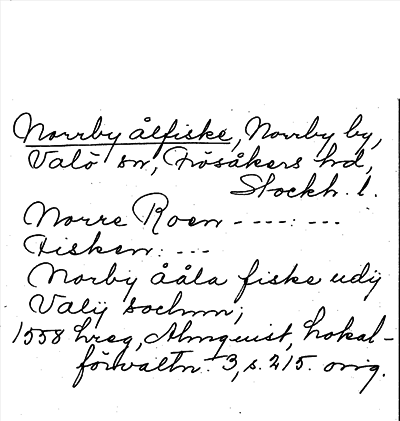 Norrby ålfiske, Norrby by,
Valö sn, Frösåkers hd,
Stockh. l.
Norre Roen ----: ---
Fisken: ---
Norby ååla fiske udÿ
Valÿ sochnn;
1558 hreg, Almquist, Lokal-
förvaltn. 3, s. 215. orig.